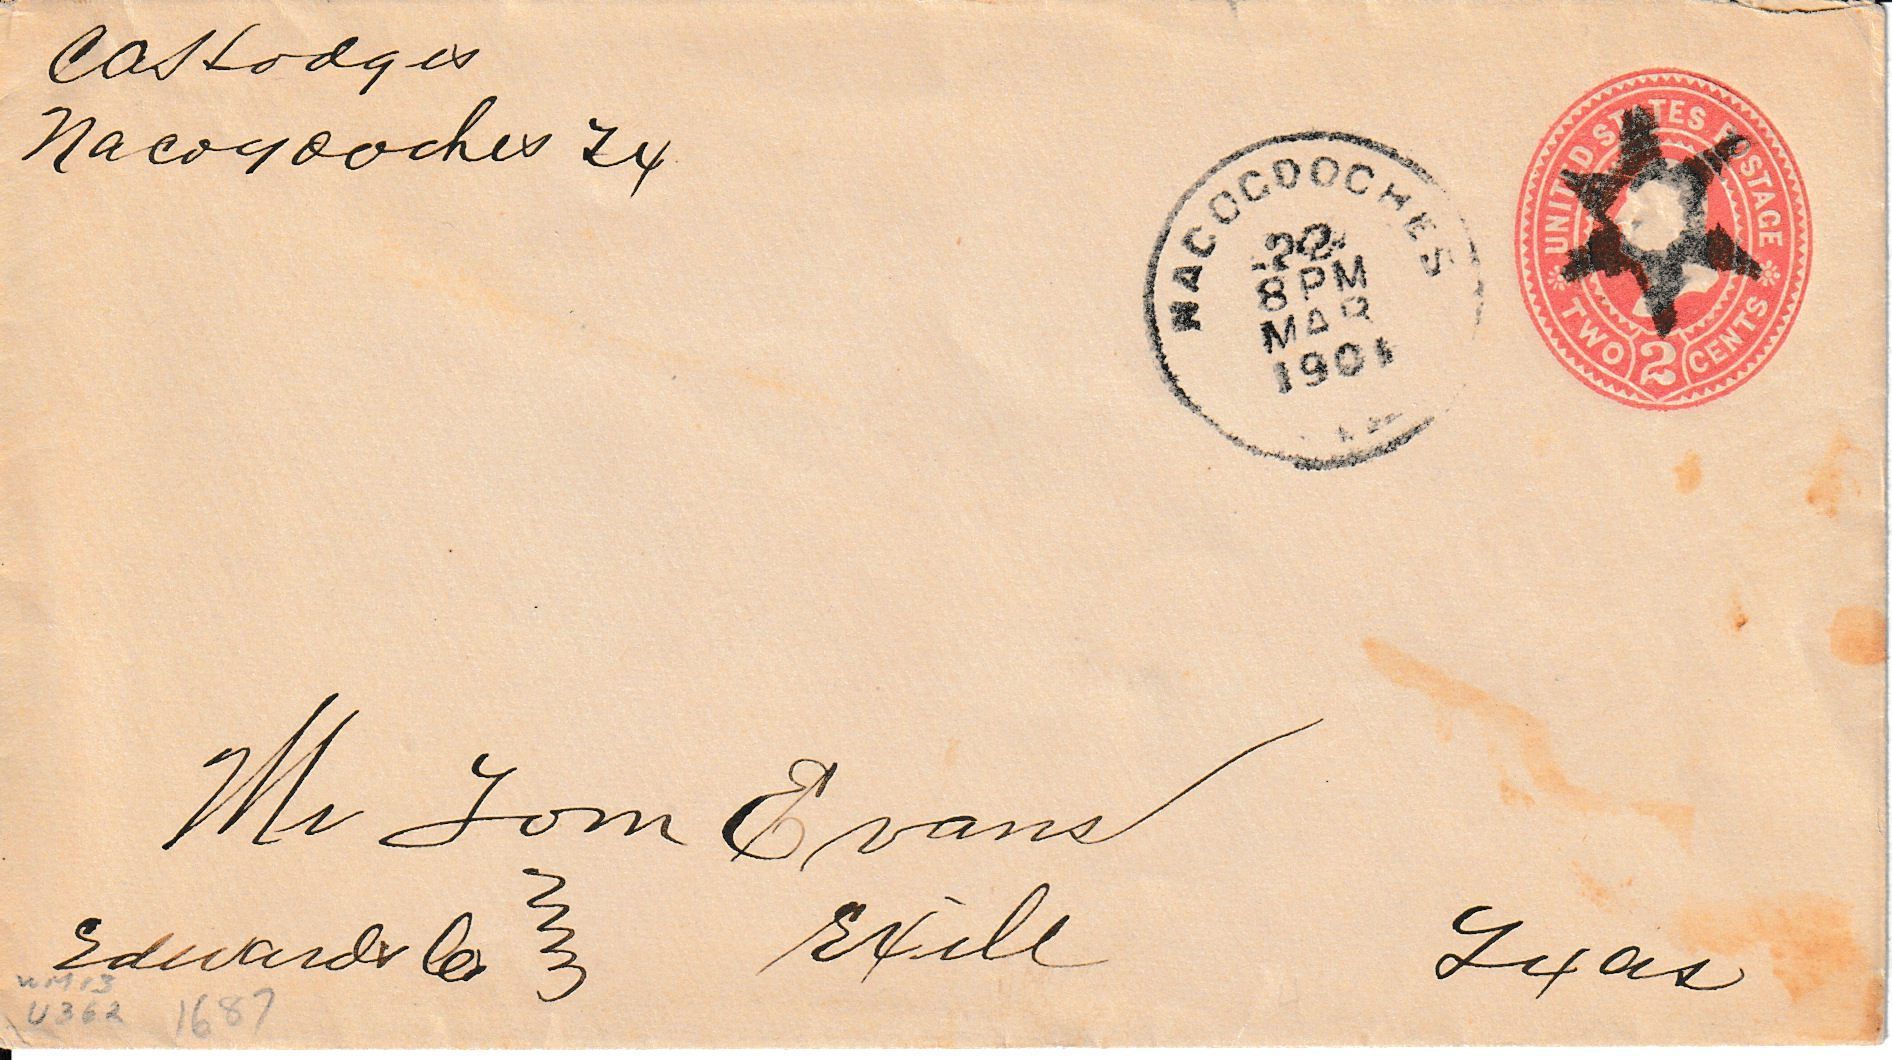 C A Hodges
Nacogdoches Tex
NACOGDOCHES
8 PM
MAR
1901
UNITED STATES POSTAGE
TWO 2 CENTS
Mr Tom Evans
Edwards Co Exile Texas
WM 13
U362 1687